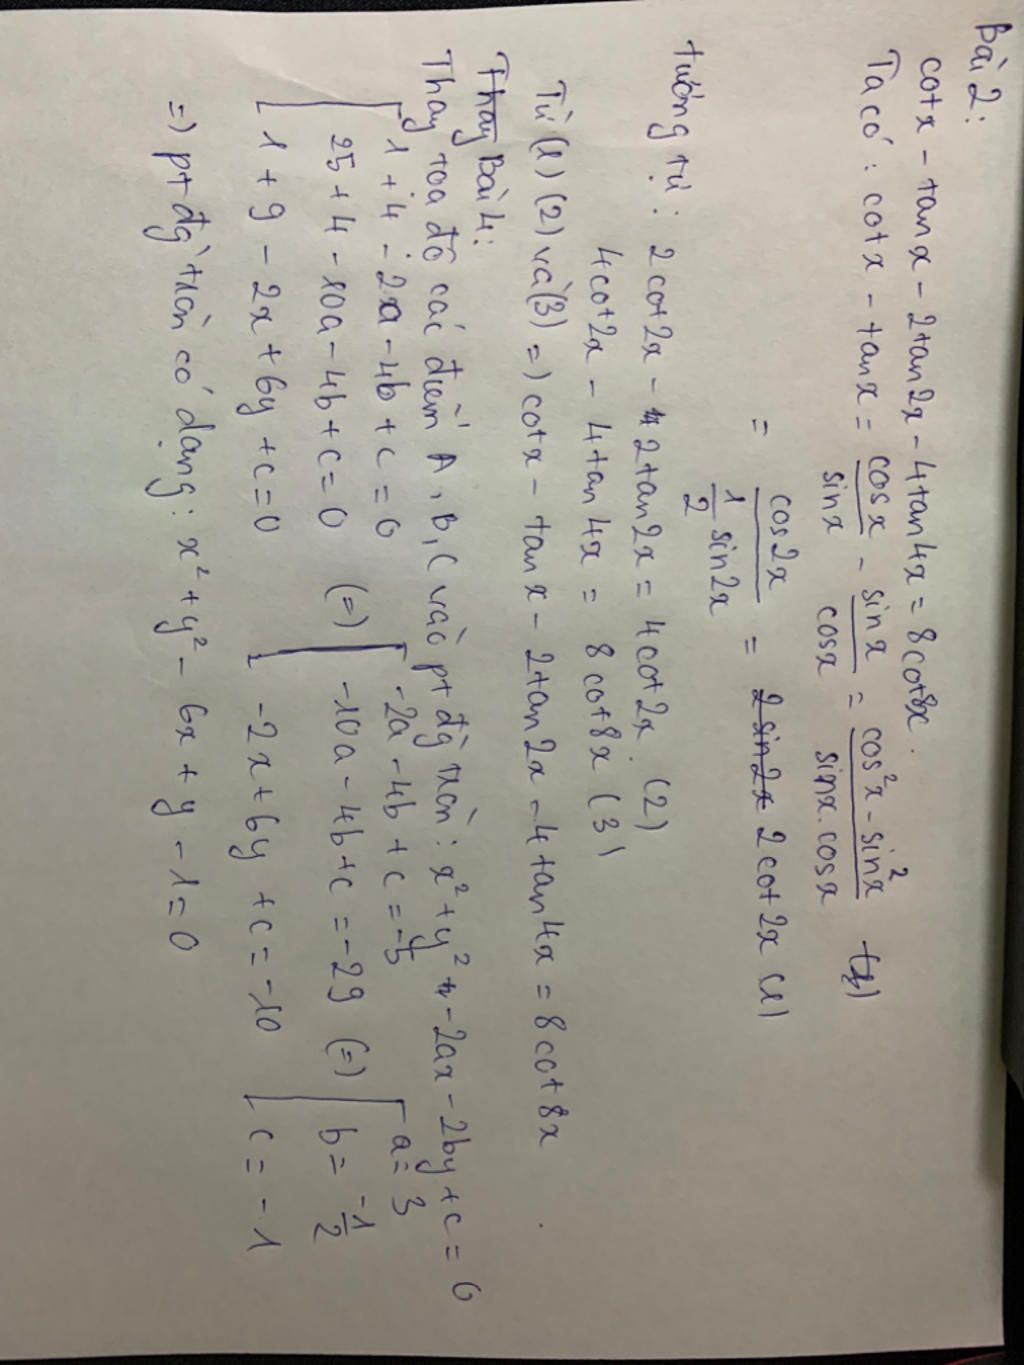 Bài 2:
cotx - tanx - 2tan2x - 4tan4x = 8cot8x.
Ta có: cotx - tanx = cosx/sinx - sinx/cosx = cos²x - sin²x/sinx.cosx
= cos2x/(1/2 sin2x) = 2sin2x 2cot2x (1)
tương tự: 2cot2x - 2tan2x = 4cot2x (2)
4cot2x - 4tan4x = 8cot8x (3)
Từ (1) (2) và (3) =) cotx - tanx - 2tan2x - 4tan4x = 8cot8x.
Thay Bài 4:
Thay toạ độ các điểm A, B, C vào pt đg tròn: x² + y² - 2ax - 2by + c = 0
1 + 4 - 2a - 4b + c = 0 -2a - 4b + c = -5 a = 3
25 + 4 - 10a - 4b + c = 0 (=) -10a - 4b + c = -29 (=) b = -1/2
1 + 9 - 2x + 6y + c = 0 -2x + 6y + c = -10 c = -1
=) pt đg tròn có dạng: x² + y² - 6x + y - 1 = 0